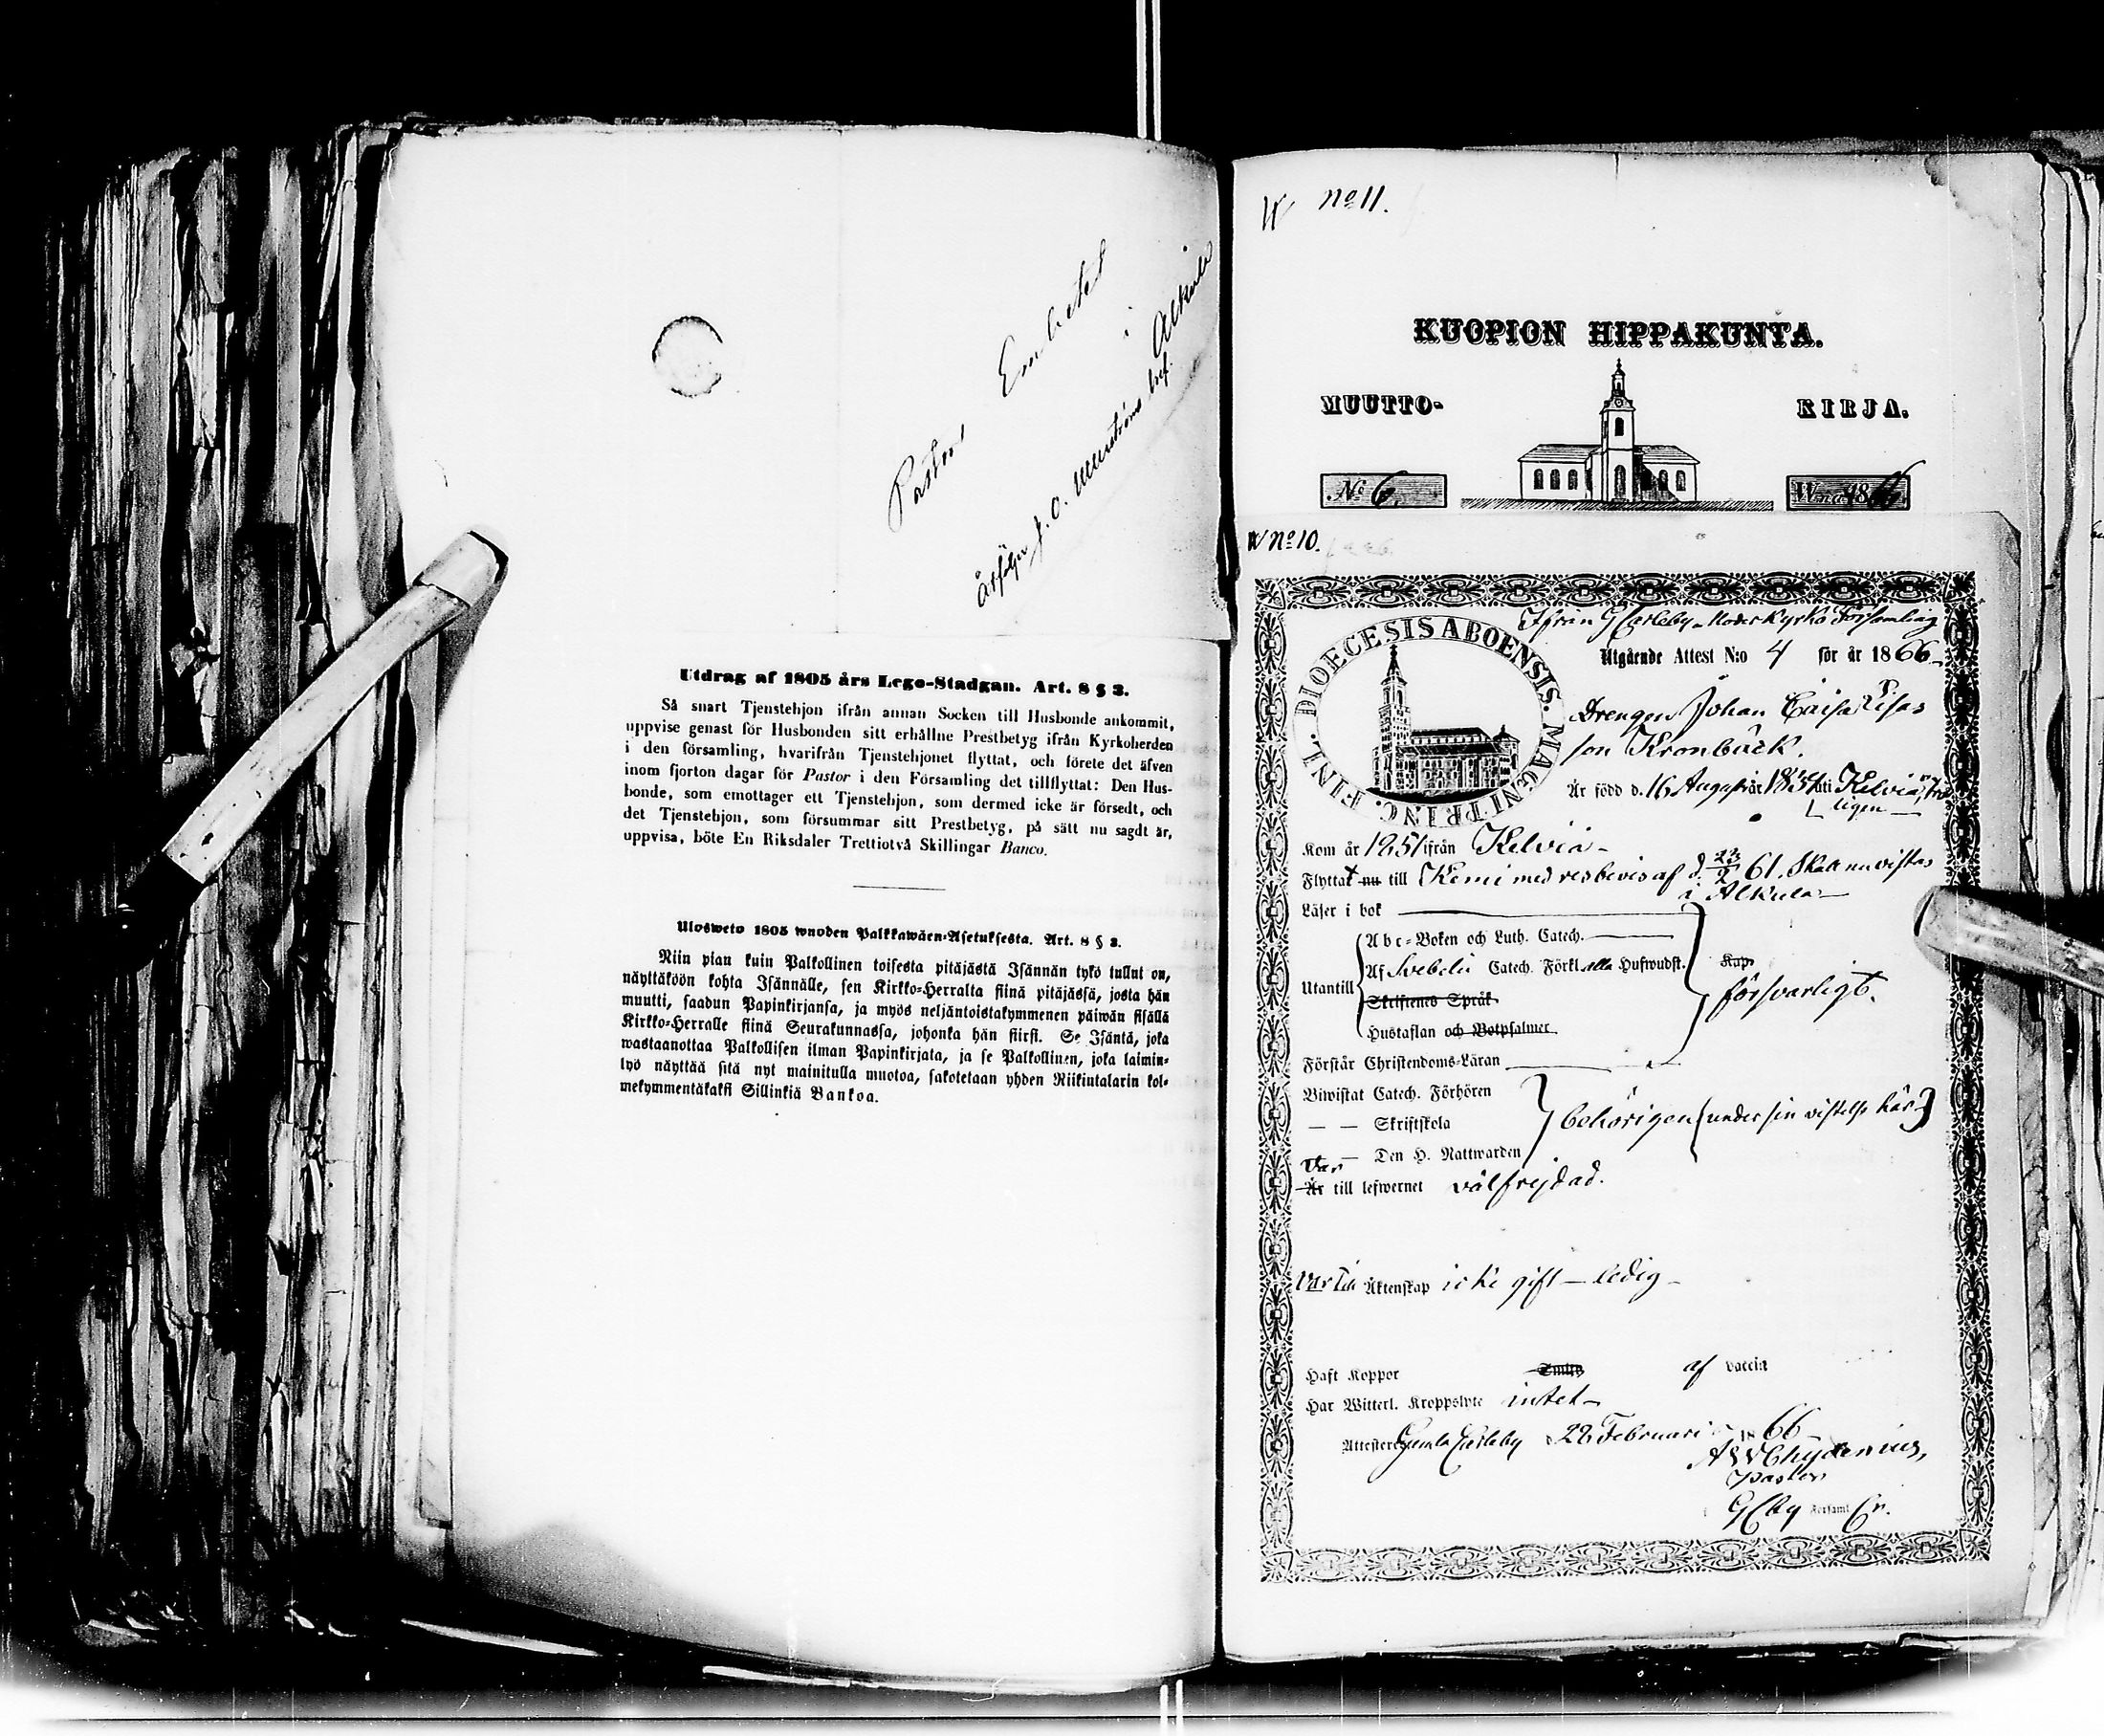 Pastors Embetet
i Alkula
Åtföljer J. O.
Utdrag af 1805 års Lego-Stadgan. Art. 8 § 3.
Så snart Tjenstehjon ifrån annan Socken till Husbonde ankommit,
uppvise genast för Husbonden sitt erhållne Prestbetyg ifrån Kyrkoherden
i den församling, hvarifrån Tjenstehjonet flyttat, och förete det äfven
inom fjorton dagar för Pastor i den Församling det tillflyttat: Den Hus-
bonde, som emottager ett Tjenstehjon, som dermed icke är försedt, och
det Tjenstehjon, som försummar sitt Prestbetyg, på sätt nu sagdt är,
uppvisa, böte En Riksdaler Trettiotvå Skillingar Banco.
Ulosweto 1805 wuoden Palkkawäen-Asetuksesta. Art. 8 § 3.
Niin pian kuin Palkollinen toisesta pitäjästä Isännän tykö tullut on,
näyttäköön kohta Isännälle, sen Kirkko-Herralta siinä pitäjässä, josta hän
muutti, saadun Papinkirjansa, ja myös neljäntoistakymmenen päiwän sisällä
Kirkko-Herralle siinä Seurakunnassa, johonka hän siirsi. Se Isäntä, joka
wastaanottaa Palkollisen ilman Papinkirjata, ja se Palkollinen, joka laimin-
lyö näyttää sitä nyt mainitulla muotoa, sakotetaan yhden Riikintalarin kol-
mekymmentäkaksi Sillinkiä Bankoa.
No 11.
KUOPION HIPPAKUNTA.
MUUTTO- KIRJA.
No 6. W:na 1866.
No 10.
Ifrån GCarleby Moderkyrko Församling
DIOECESIS ABOENSIS. MAGNI PRINC. FINL.
Utgående Attest N:o 4 för år 1866
Drengen Johan Caisa Lisas
son Kronbäck.
Är född d. 16 Augusti år 1834 uti Kelviå, tro
ligen
Kom år 1851 ifrån Kelviå
Flyttat nu till Kemi med resbevis af d. 23/2 61. Skall nu vistas
i Alkula
Läser i bok
Abc-Boken och Luth. Catech.
Utantill Af Svebelii Catech. Förkl alla Hufwudst.
Skriftenes Språk
Hustaflan och Botpsalmer
försvarligt.
Förstår Christendoms-Läran
Biwistat Catech. Förhören
— — Skriftskola behörigen (under sin vistelse här)
— — Den H. Nattwarden
Var
Är till lefwernet välfrejdad.
Var Till Äktenskap icke gift — ledig
Haft Koppor af vaccin
Har Witterl. Kroppslyte intet
Attesterar Gamla Carleby d. 28 Februari 1866
A W Chydenius,
Pastor
GCby Församl